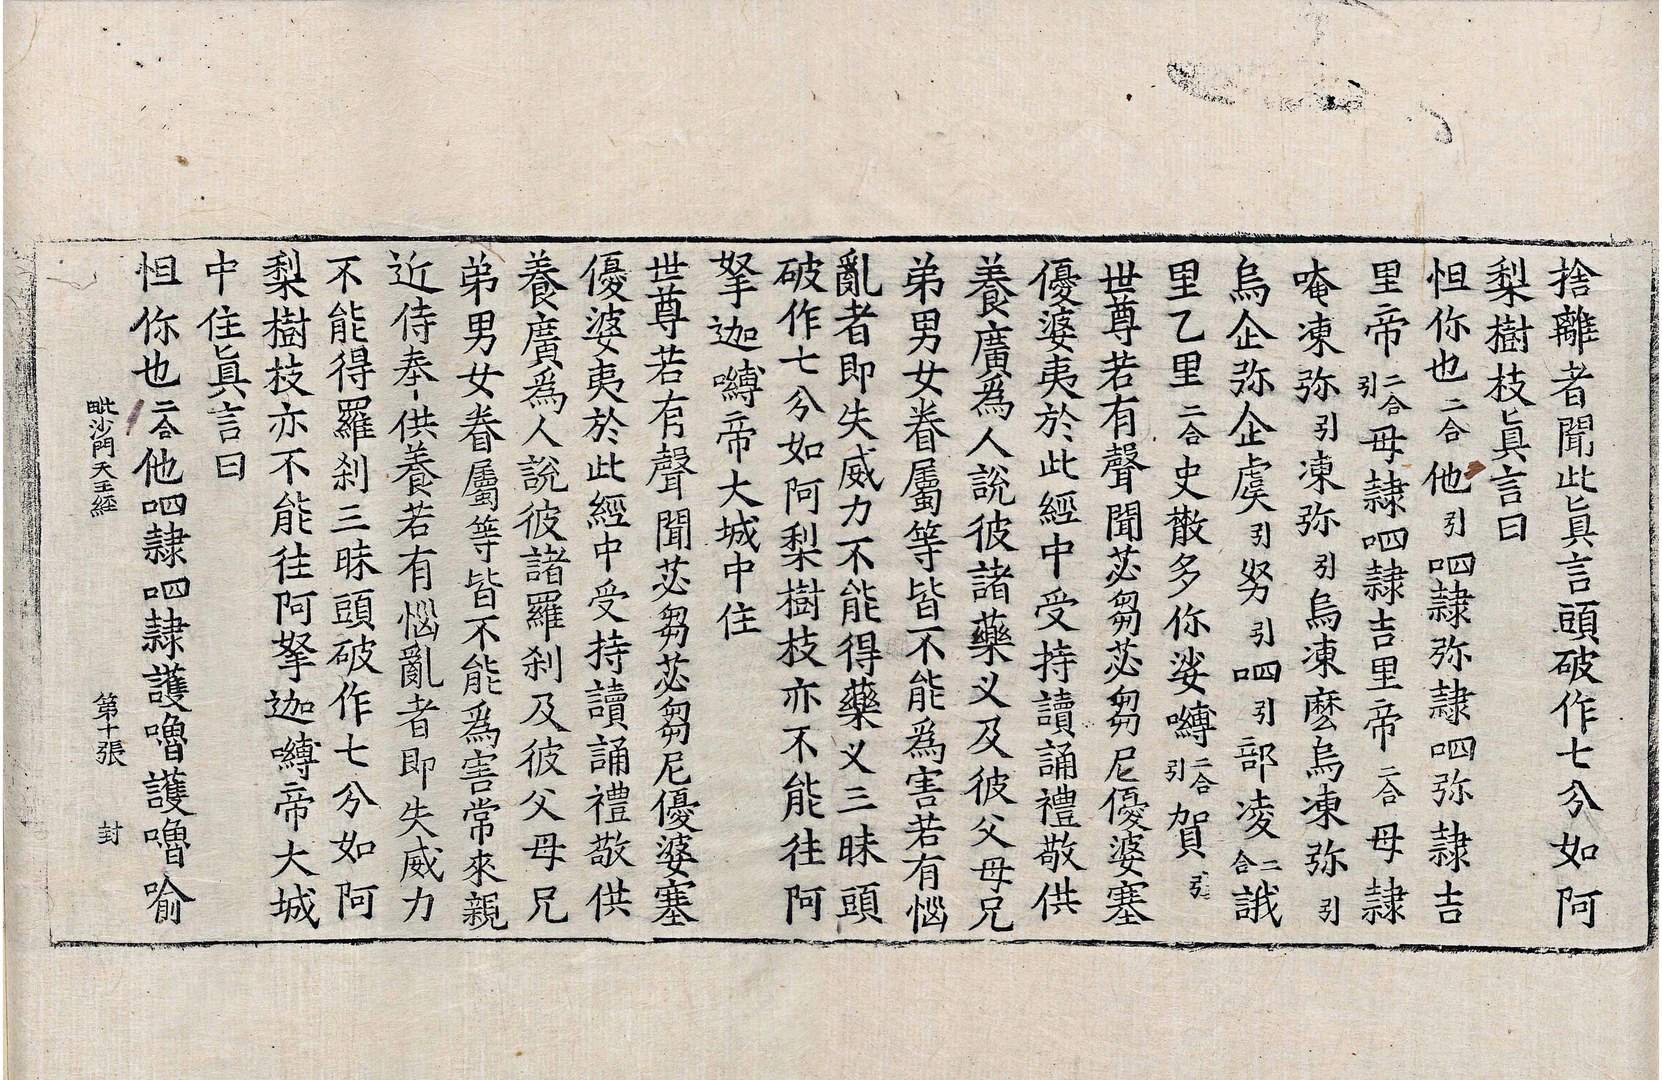 捨離者聞此眞言頭破作七分如阿
梨樹枝眞言曰
怛你也二合他引呬隷弥隷呬弥隷吉
里帝二合引母隷呬隷吉里帝二合母隷
唵凍弥引凍弥引烏凍麽烏凍弥引
烏企弥企虞引努引呬引部凌二合誐
里乙里二合史散多你娑嚩二合引賀引
世尊若有聲聞苾芻苾芻尼優婆塞
優婆夷於此經中受持讀誦禮敬供
養廣爲人說彼諸藥义及彼父母兄
弟男女眷屬等皆不能爲害若有惱
亂者即失威力不能得藥义三昧頭
破作七分如阿梨樹枝亦不能往阿
拏迦嚩帝大城中住
世尊若有聲聞苾芻苾芻尼優婆塞
優婆夷於此經中受持讀誦禮敬供
養廣爲人說彼諸羅刹及彼父母兄
弟男女眷屬等皆不能爲害常來親
近侍奉供養若有惱亂者即失威力
不能得羅刹三昧頭破作七分如阿
梨樹枝亦不能往阿拏迦嚩帝大城
中住眞言曰
怛你也二合他呬隷呬隷護嚕護嚕喻
毗沙門天王經 第十張 封